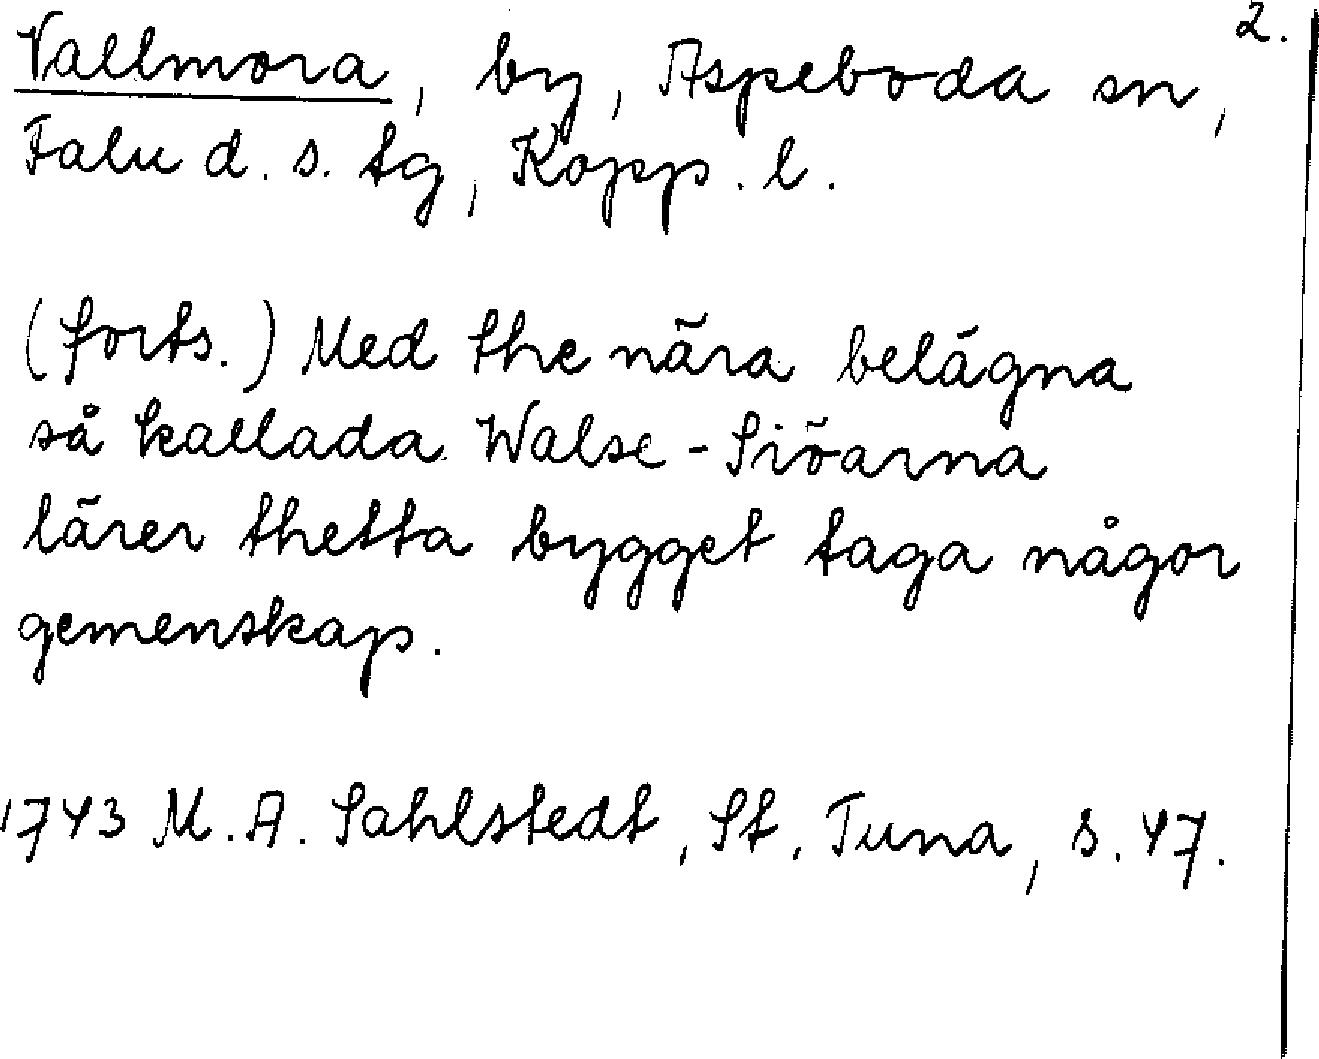 2.
Vallmora, by, Aspeboda sn,
Falu d. s. tg, Kopp. l.
(forts.) Med the nära belägna
så kallada Walse-Siöarna
lärer thetta bygget taga någor
gemenskap.
1743 M. A. Sahlstedt, St. Tuna, s. 47.